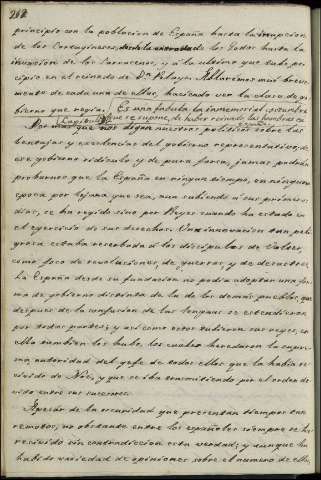 262
principio con la poblacion de España hasta la irrupcion
de los Cartagineses, desde la entrada de los Godos hasta la
invasion de los Sarracenos, y á la ultima que tubo prin-
cipio en el reinado de Dn. Pelayo. Hablaremos muy breve-
mente de cada una de ellas, haciendo ver la clase de go-
bierno que regia. Es una fabula la inmemorial costumbre
Capitulo que se supone, de haber reinado las hembras en
Por mas que nos digan nuestros politicos sobre las
ventajas y excelencias del gobierno representativo, de
ese gobierno ridiculo y de pura farsa, jamas podrán
probarnos que la España en ningun tiempo, en ninguna
epoca por lejana que sea, aun subiendo á sus primeros
dias, se ha regido sino por Reyes cuando ha estado en
el ejercicio de sus derechos. Una innovacion tan peli-
grosa estaba reserbada á los discipulos de
como foco de revoluciones, de guerras, y de desastres.
La España desde su fundacion no podia adoptar una for-
ma de gobierno distinta de la de los demás pueblos, que
despues de la confusion de las lenguas se estendieron
por todas partes; y asi como estos tubieron sus reyes, en
ella tambien los hubo, los cuales heredaron la supre-
ma autoridad del gefe de todos ellos que la habia re-
civido de Noé, y que se iba trasmitiendo por el orden de-
vido entre sus sucesores.
Apesar de la oscuridad que presentan tiempos tan
remotos, no obstante entre los españoles siempre se ha
recivido sin contradiccion esta verdad; y aunque ha
habido variedad de opiniones sobre el numero de ellos,